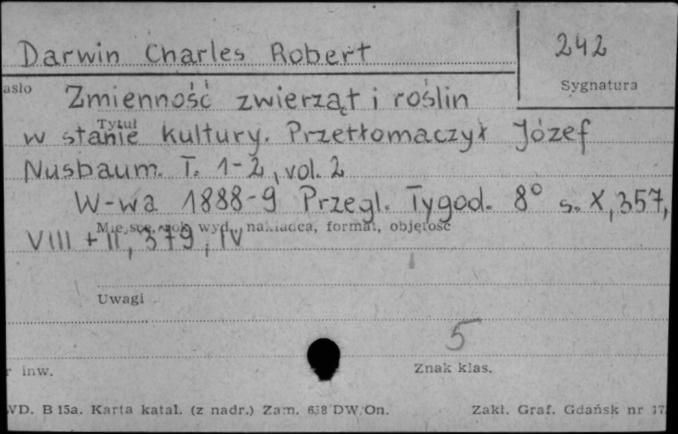 Darwin Charles Robert
242
Sygnatura
asło
Zmienność zwierząt i roślin
Tytuł
w stanie kultury. Przetłomaczył Józef
Nusbaum. T. 1-2, vol. 2
W-wa 1888-9 Przegl. Tygod. 8° s. X, 357,
Miejsce, rok wyd., nakładca, format, objętość
VIII + II, 379, IV
Uwagi
5
r inw.
Znak klas.
WD. B 15a. Karta katal. (z nadr.) Zam. 638 DW. On.
Zakł. Graf. Gdańsk nr 17